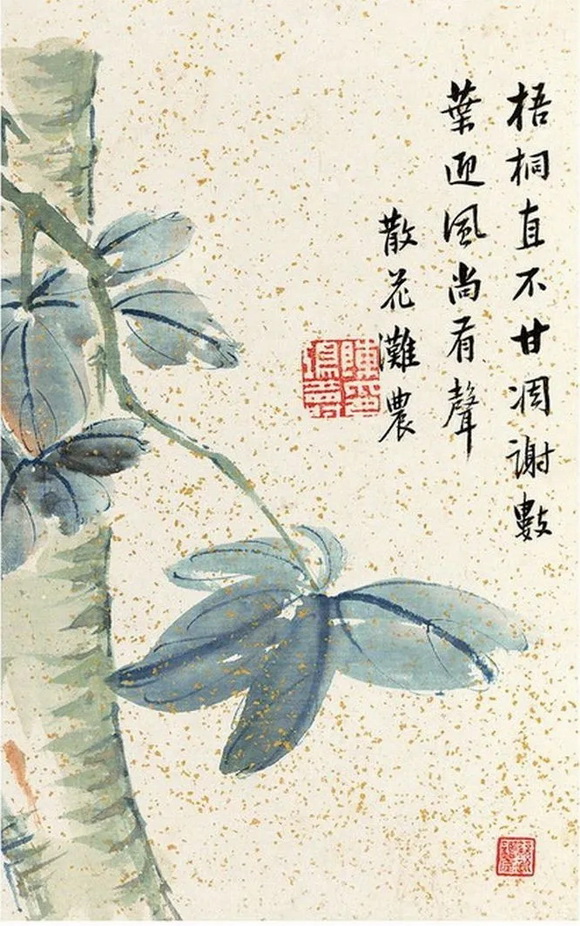 梧桐直不甘凋谢數
葉迎風尚有聲
散花灘農